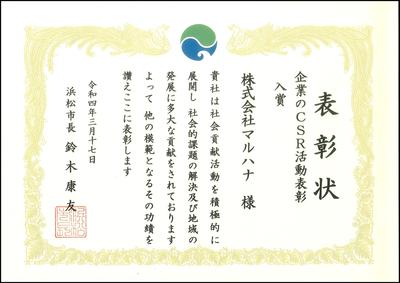 表彰状
企業のCSR活動表彰
入賞
株式会社マルハナ 様
貴社は社会貢献活動を積極的に
展開し 社会的課題の解決及び地域の
発展に多大な貢献をされております
よって 他の模範となるその功績を
讃えここに表彰します
令和四年三月十七日
浜松市長 鈴木康友